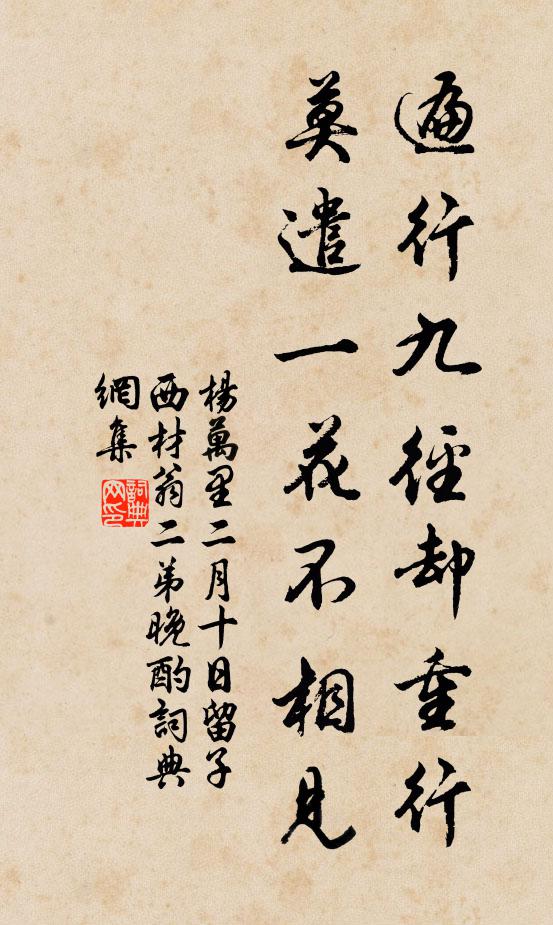 遍行九徑却重行
莫遣一花不相見
楊萬里二月十日留子
西材翁二弟晚酌詞典
網集
詞典
网印